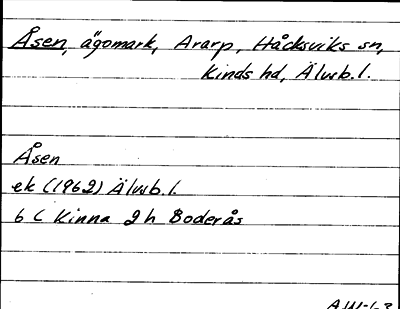 Åsen, ägomark, Ararp, Håcksviks sn,
Kinds hd, Älvsb. l.
Åsen
ek (1962) Älvsb. l.
6 C Kinna 2 h Boderås